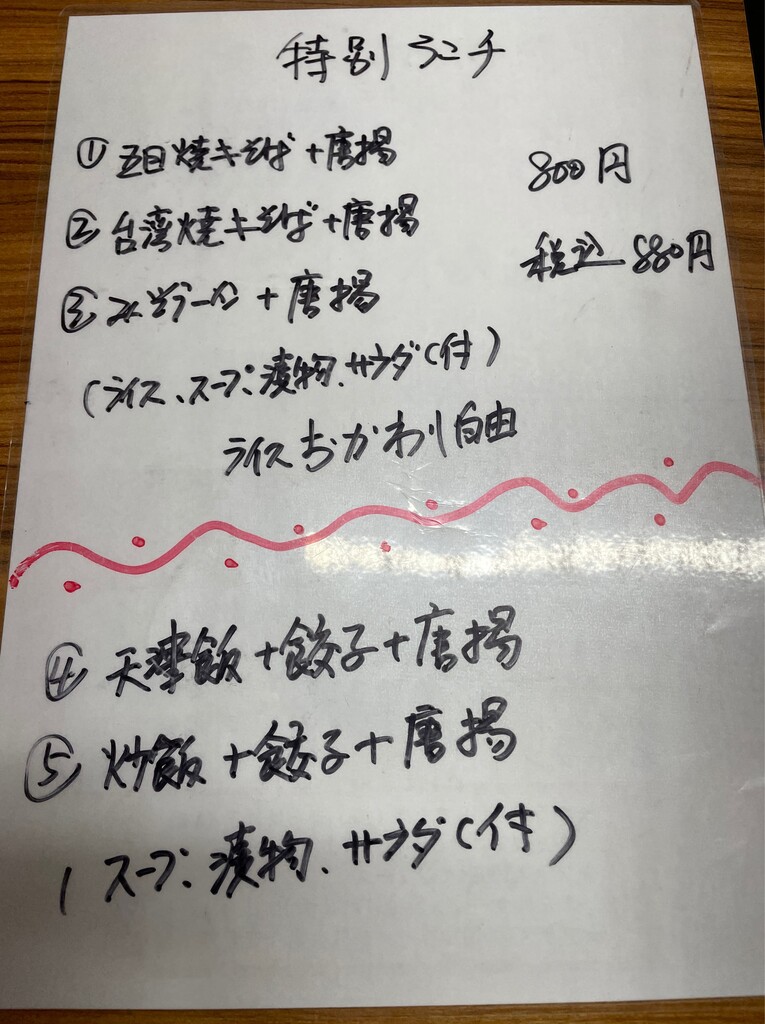 特別ランチ
① 五目焼きそば+唐揚
800円
② 台湾焼きそば+唐揚
税込 880円
③ ラーメン + 唐揚
(ライス、スープ、漬物、サラダ(付)
ライスおかわり自由
④ 天津飯+餃子+唐揚
⑤ 炒飯+餃子+唐揚
( スープ、漬物、サラダ(付)